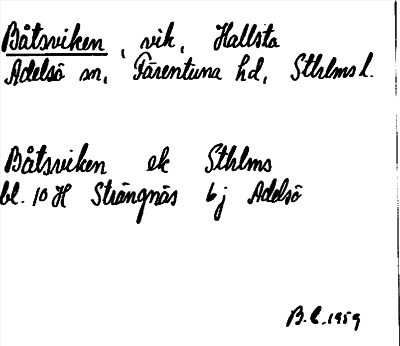 Båtsviken, vik, Hallsta
Adelsö sn, Färentuna hd, Sthlms l.
Båtsviken ek Sthlms
bl. 10 H Strängnäs 6 j Adelsö
B.L. 1959